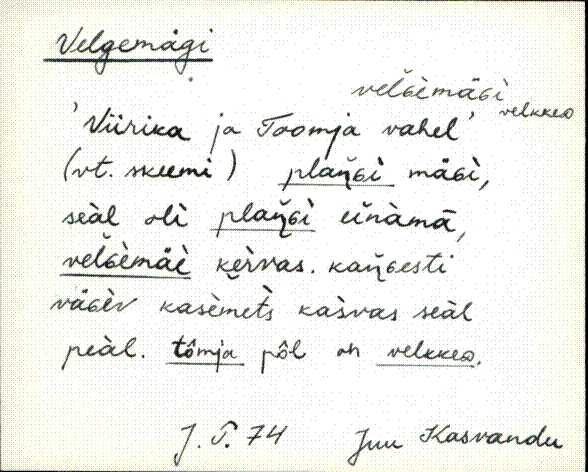 Velgemägi
vel̆ɢèmäɢì
velkkeᴅ
'Viirika ja Toomja vahel'
(vt. skeemi) plaŋ̆ɢì mäɢì,
seàl olì plaŋ̆ɢì eĭnàmā,
vel̆ɢèmäè kèrvas. kaŋ̆ɢesti
väɢèv kasèmet̀s kaѕ̀vas seàl
peàl. tômja pôl on velkkeᴅ.
J. T. 74 Juu Kasvandu